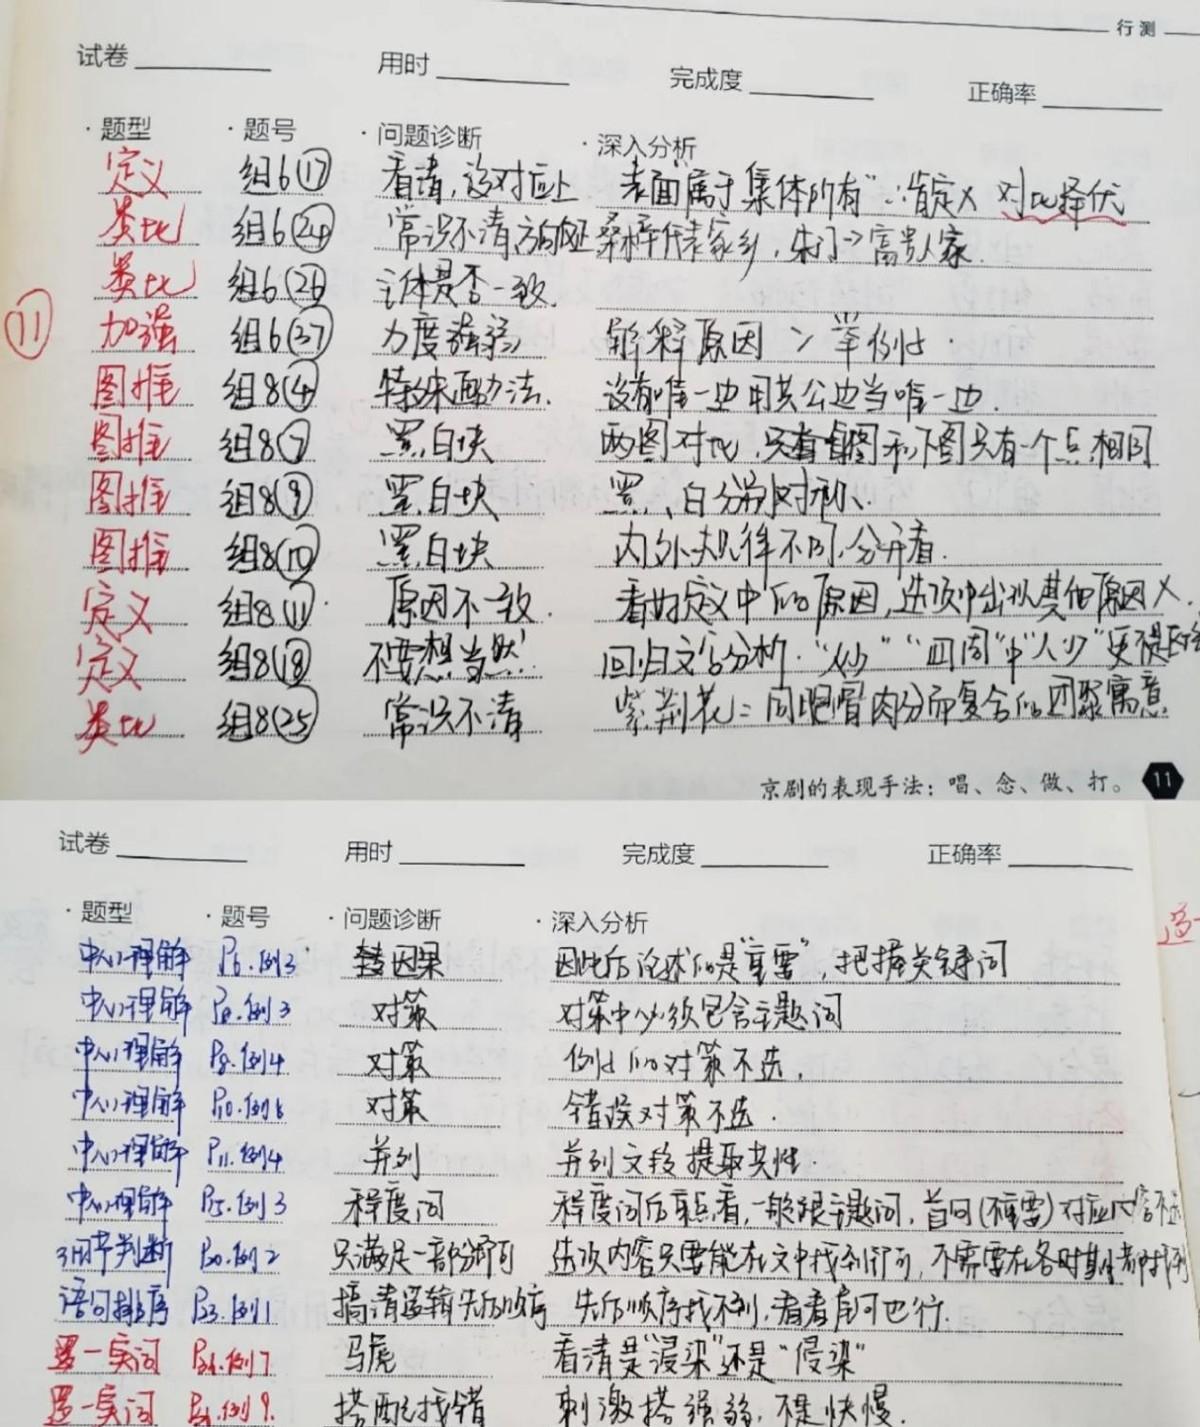 行测
试卷 用时 完成度 正确率
·题型 ·题号 ·问题诊断 ·深入分析
定义 组6⑰ 看清,该对应上 表面"属于集体所有"∴肯定× 对比择优
类比 组6㉔ 常识不清 桑梓代表家乡,朱门→富贵人家.
类比 组6㉖ 主体是否一致.
⑪
加强 组6㊲ 力度强弱 解释原因 > 举例.
图推 组8④ 特殊画法. 没有唯一边用共公边当唯一边.
图推 组8⑦ 黑白块 两图对比,只有图和下图只有一个点相同
图推 组8⑨ 黑白块 黑、白分别对称.
图推 组8⑩ 黑白块 内外规律不同,分开看.
定义 组8⑪ 原因不一致. 看好定义中的原因,选项中出现其他原因×.
定义 组8⑱ 不要想当然! 回归文字分析. "四周"中"人少"
类比 组8㉕ 常识不清 紫荆花:同胞骨肉分而复合的团聚寓意
京剧的表现手法:唱、念、做、打。 11
试卷 用时 完成度 正确率
·题型 ·题号 ·问题诊断 ·深入分析
中心理解 P6.例3 因果 因此后论述的是"重要",把握关键词
中心理解 P8.例3 对策 对策中必须包含主题词
中心理解 P8.例4 对策 例子的对策不选.
中心理解 P10.例6 对策 错误对策不选.
中心理解 P11.例4 并列 并列文段提取共性.
中心理解 P15.例3 程度词 程度词后重点看,一般跟主题词,首句(不重要)对应内容不选
细节判断 P20.例2 只满足一部分即可 选项内容只要能在文中找到即可,不需要在各时期都找到
语句排序 P23.例1 搞清逻辑先后顺序 先后顺序找不到,看看尾句也行.
置一实词 P34.例7 马虎 看清是"浸染"还是"侵染"
置一实词 例9. 搭配找错 刺激搭强弱,不是快慢.